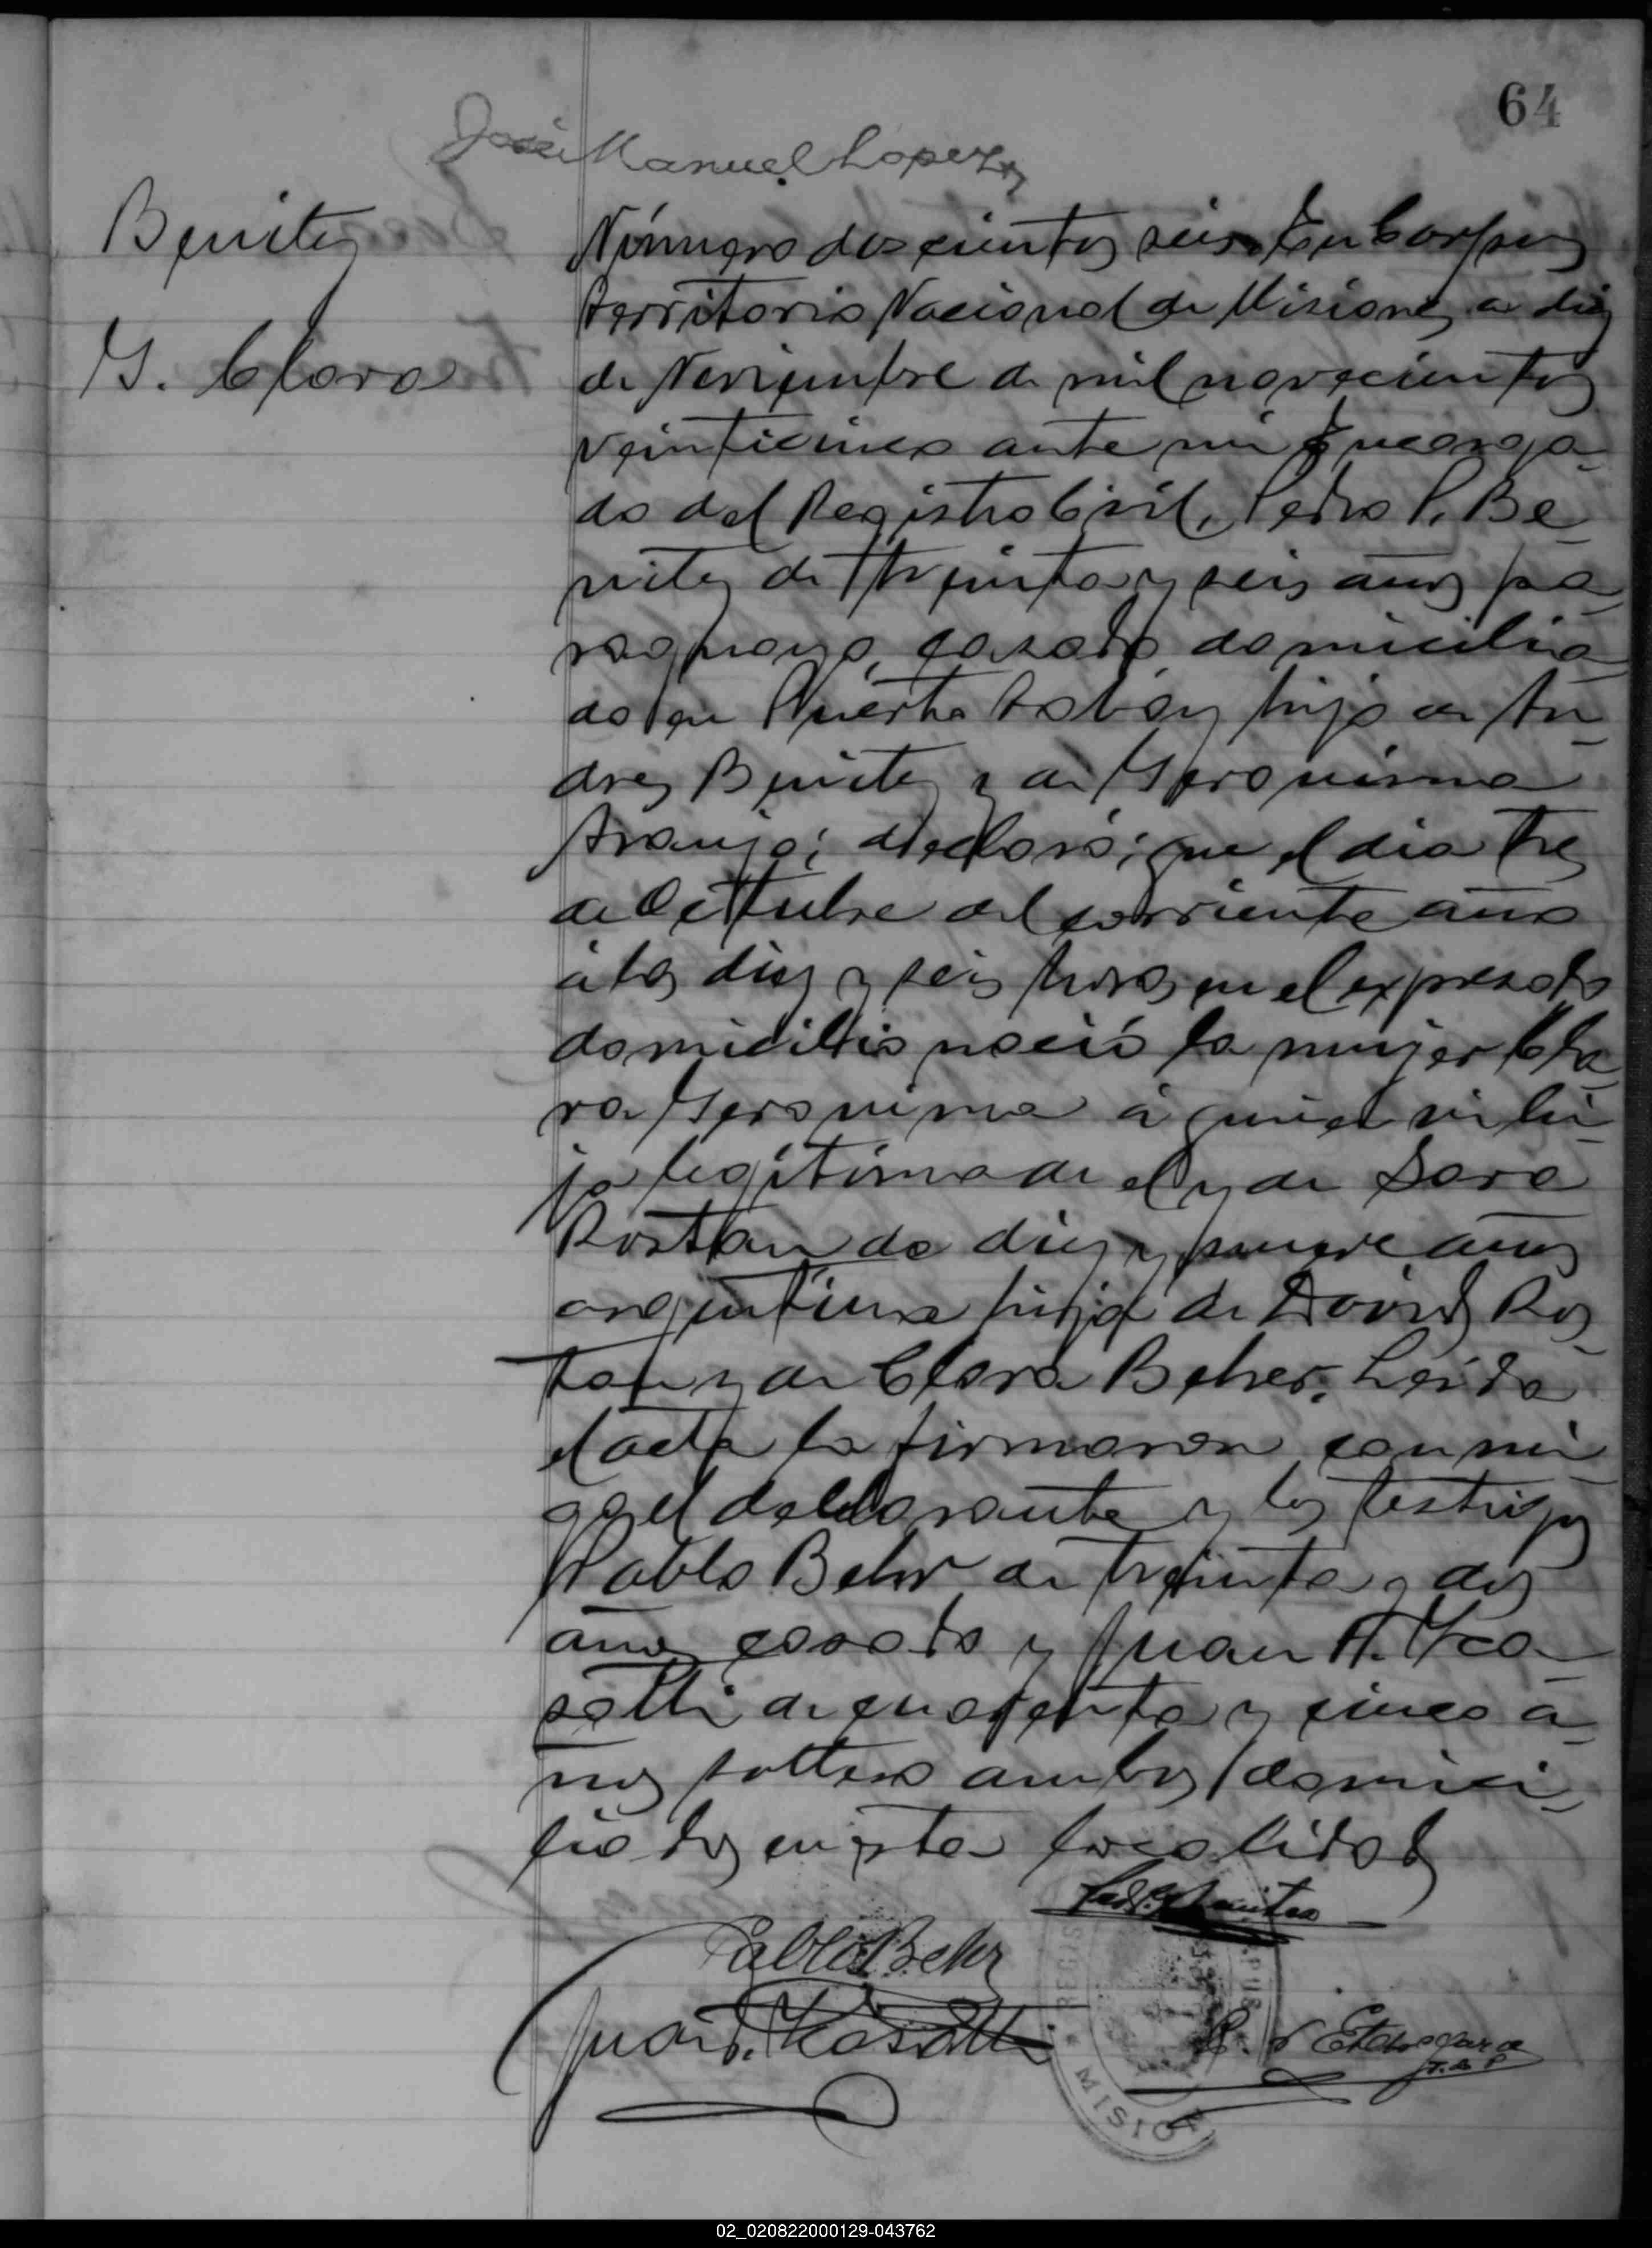 64
José Manuel Lopez
Benitez
G. Clara
Número doscientos seis. En Corpus
Territorio Nacional de Misiones a diez
de Noviembre de mil novecientos
veinticinco ante mi Encarga-
do del Registro Civil, Pedro P. Be-
nitez de treinta y seis años pa-
raguayo, casado, domicilia-
do en Puerto hijo de An-
dres Benitez y de Geronima
Araujo; declaró; que el dia tres
de Octubre del corriente año
á las diez y seis horas en el expresado
domicilio nació la mujer Cla-
ra Geronima á quien vi hi-
ja legítima de el y de Sara
Rostan de diez y nueve años
argentina hija de David Ros-
tan y de Clara Beher. Leida
el acta la firmaron conmi-
go el declarante y los testigos
Pablo Behr de treinta y dos
años casado y Juan A.
de cuarenta y cinco a-
ños soltero ambos domici-
liados en esta localidad
Pedro P. Benitez
Pablo Behr
Juan
MISIO
02_020822000129-043762